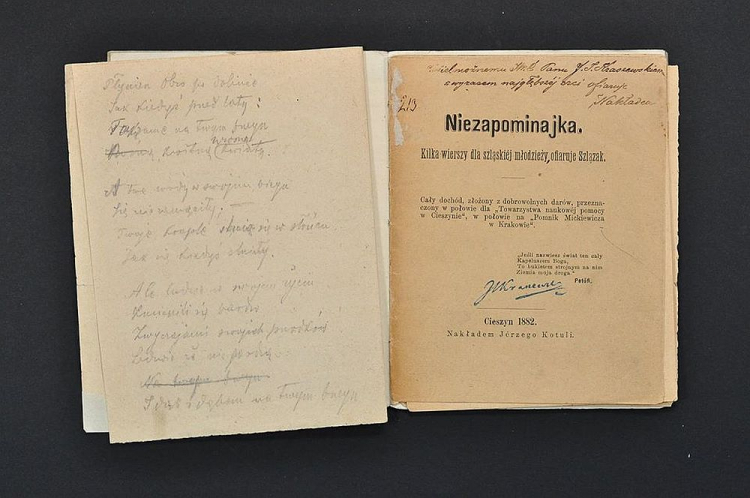 Płyniesz Olzo po dolinie
Jak kiedyś przed laty:
Takie same na twym brzegu
Kwitną kwiaty.
A twe wody w swoim biegu
Się nie zmąciły;
Twoje krople się w słońcu
Jak się kiedyś
Ale ludzie w swojem życiu
Zmienili się bardzo
Zwyczajami swoich przodków
Ledwie że nie gardzą
Na twym brzegu
I las dębów na twym brzegu
Wielmożnemu Panu J. I. Kraszewskiemu
z wyrazem najgłębszéj czci ofiaruje
Nakładca
213
Niezapominajka.
Kilka wierszy dla szląskiéj młodzieży, ofiaruje Szlązak.
Cały dochód, złożony z dobrowolnych darów, przezna-
czony w połowie dla „Towarzystwa naukowej pomocy
w Cieszynie“, w połowie na „Pomnik Mickiewicza
w Krakowie“.
„Jeśli nazwiesz świat ten cały
Kapeluszem Boga,
To bukietem strojnym na nim
Ziemia moja droga.“
Petöfi.
Cieszyn 1882.
Nakładem Jérzego Kotuli.